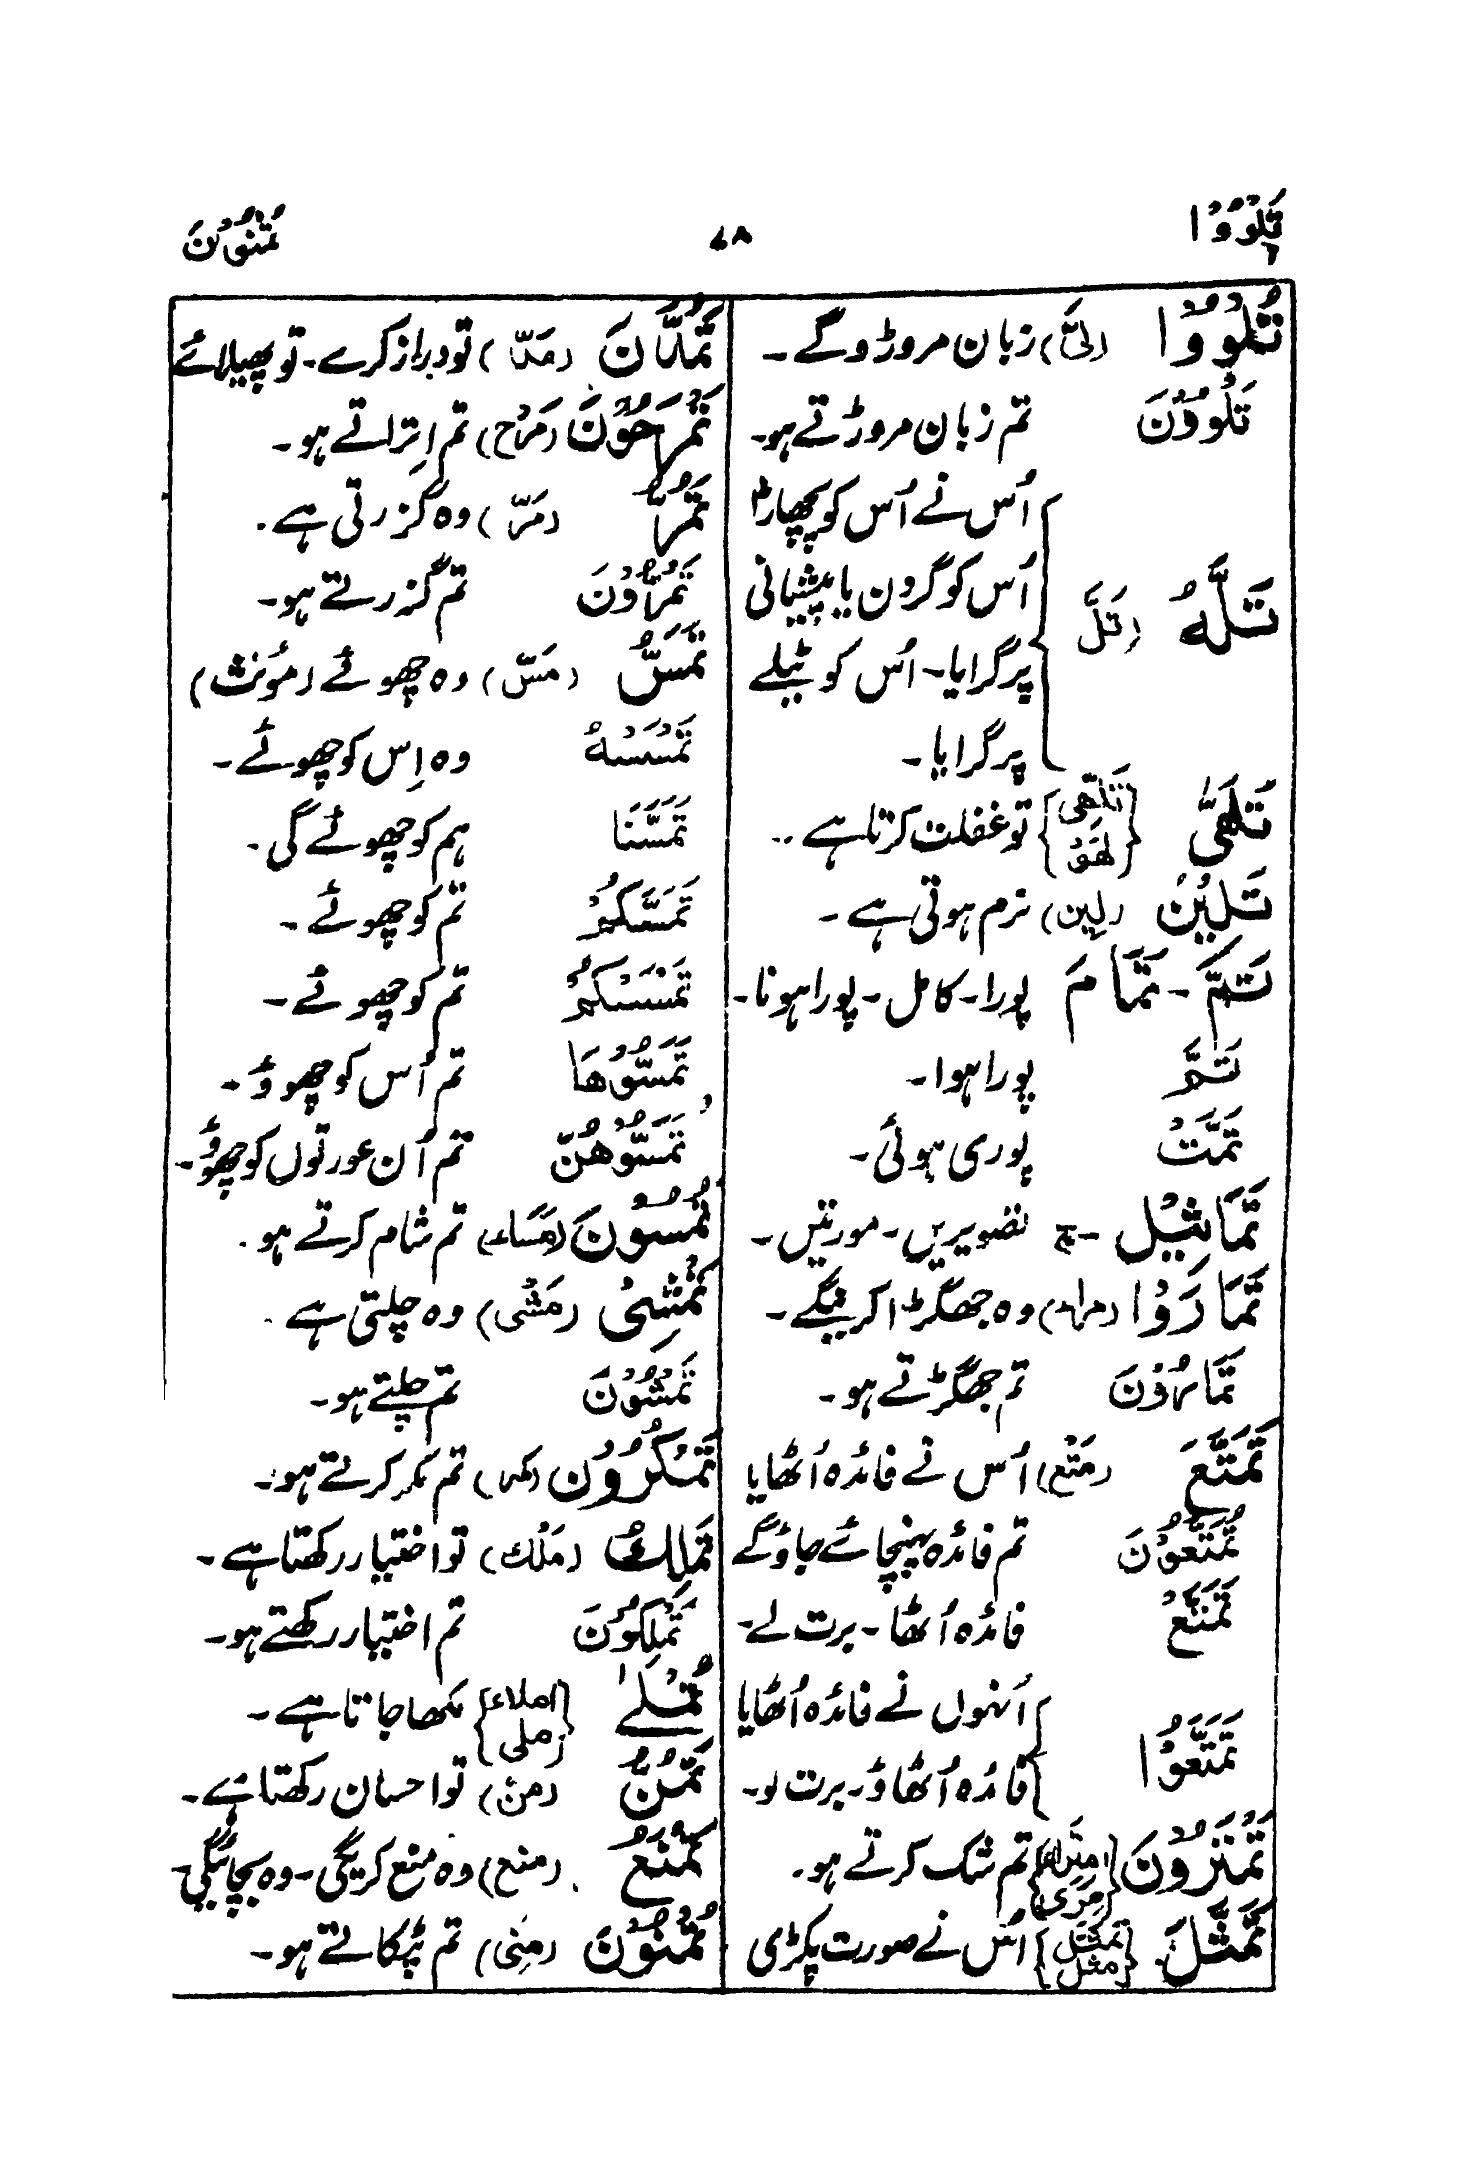 تَلْوُوْا ۷۸ تُمْنُوْنَ
تَلْوُوْا (لَیّ) زبان مروڑو گے۔
تَلْوُوْنَ تم زبان مروڑتے ہو۔
تَلَّهُ (تَلَّ) اُس نے اُس کو پچھاڑا
اُس کو گردن یا پیشانی
پر گرایا۔ اُس کو ٹیلے
پر گرایا۔
تَلَهّٰی {تَلَهِّی لَهْو} تو غفلت کرتا ہے۔
تَلِیْنُ (لِین) نرم ہوتی ہے۔
تَمَّ۔ تَمَامَ پورا۔ کامل۔ پورا ہونا۔
تَمَّ پورا ہوا۔
تَمَّتْ پوری ہوئی۔
تَمَاثِیْل۔ ج تصویریں۔ مورتیں۔
تَمَارَوْا (مراء) وہ جھگڑا کرینگے۔
تَمَارُوْنَ تم جھگڑتے ہو۔
تَمَتَّعَ (مَتْع) اُس نے فائدہ اُٹھایا
تُمَتَّعُوْنَ تم فائدہ پہنچائے جاؤ گے
تَمَتَّعْ فائدہ اُٹھا۔ برت لے۔
تَمَتَّعُوْا اُنہوں نے فائدہ اُٹھایا
فائدہ اُٹھاؤ۔ برت لو۔
تَمْتَرُوْنَ {امتراء مَرْی} تم شک کرتے ہو۔
تَمَثَّلَ {تَمَثُّل مثل} اُس نے صورت پکڑی
تَمُدَّنَّ (مَدّ) تو دراز کرے۔ تو پھیلائے
تَمْرَحُوْنَ (مَرَح) تم اِتراتے ہو۔
تَمُرُّ (مَرّ) وہ گزرتی ہے۔
تَمُرُّوْنَ تم گزرتے ہو۔
تَمَسَّ (مَسّ) وہ چھوئے (مؤنث)
تَمْسَسْهُ وہ اِس کو چھوئے۔
تَمَسَّنَا ہم کو چھوئے گی۔
تَمَسَّكُمْ تم کو چھوئے۔
تَمْسَسْكُمْ تم کو چھوئے۔
تَمَسُّوْهَا تم اُس کو چھوؤ۔
تَمَسُّوْهُنَّ تم اُن عورتوں کو چھوؤ۔
تُمْسُوْنَ (مَسَاء) تم شام کرتے ہو۔
تَمْشِیْ (مَشْی) وہ چلتی ہے۔
تَمْشُوْنَ تم چلتے ہو۔
تَمْكُرُوْن (مکر) تم مکر کرتے ہو۔
تَمْلِكُ (مَلْك) تو اختیار رکھتا ہے۔
تَمْلِكُوْنَ تم اختیار رکھتے ہو۔
تُمْلٰے {املاء ملی} لکھا جاتا ہے۔
تَمُنُّ (من) تو احسان رکھتا ہے۔
تَمْنَعُ (منع) وہ منع کریگی۔ وہ بچائیگی
تُمْنُوْنَ (مِنی) تم ٹپکاتے ہو۔